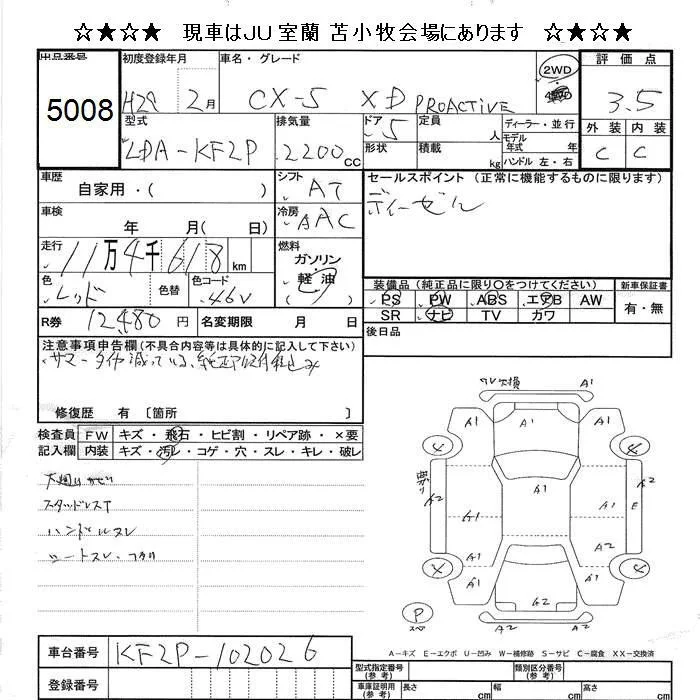 ☆★☆★ 現車はJU室蘭 苫小牧会場にあります ☆★☆★
出品番号 初度登録年月 車名・グレード 2WD 4WD 評価点
5008 H29 2月 CX-5 XD PROACTIVE 3.5
型式 排気量 ドア 定員 人 ディーラー・並行 外装 内装
LDA-KF2P 2200cc 5 形状 積載 kg モデル年式 年 ハンドル 左・右 C C
車歴 自家用・( ) シフト AT セールスポイント (正常に機能するものに限ります)
車検 年 月( 日) 冷房 AAC ディーゼル
走行 11万4千618km 燃料 ガソリン 軽油
色 レッド 色替 色コード 46V 装備品 (純正品に限り○をつけてください) 新車保証書
PS PW ABS エアB AW 有・無
SR ナビ TV カワ
R券 12,480円 名変期限 月 日 後日品
注意事項申告欄(不具合内容等は具体的に記入して下さい)
サマータイヤ減っている、
修復歴 有 〔箇所 〕
検査員 FW キズ・飛石・ヒビ割・リペア跡・×要
記入欄 内装 キズ・汚レ・コゲ・穴・スレ・キレ・破レ
スタッドレスT
ハンドルスレ
シートスレ・
交換 A1
A1 A1
4 4
A2 A1 A1 A2 E
A1 A1
A1 A2
4 4
A1 A1
P スペア A2 A2
A-キズ E-エクボ U-凹み W-補修跡 S-サビ C-腐食 XX-交換済
車台番号 KF2P-102026
登録番号
型式指定番号(参考) 類別区分番号(参考)
車庫証明用(参考) 長さ cm 幅 cm 高さ cm